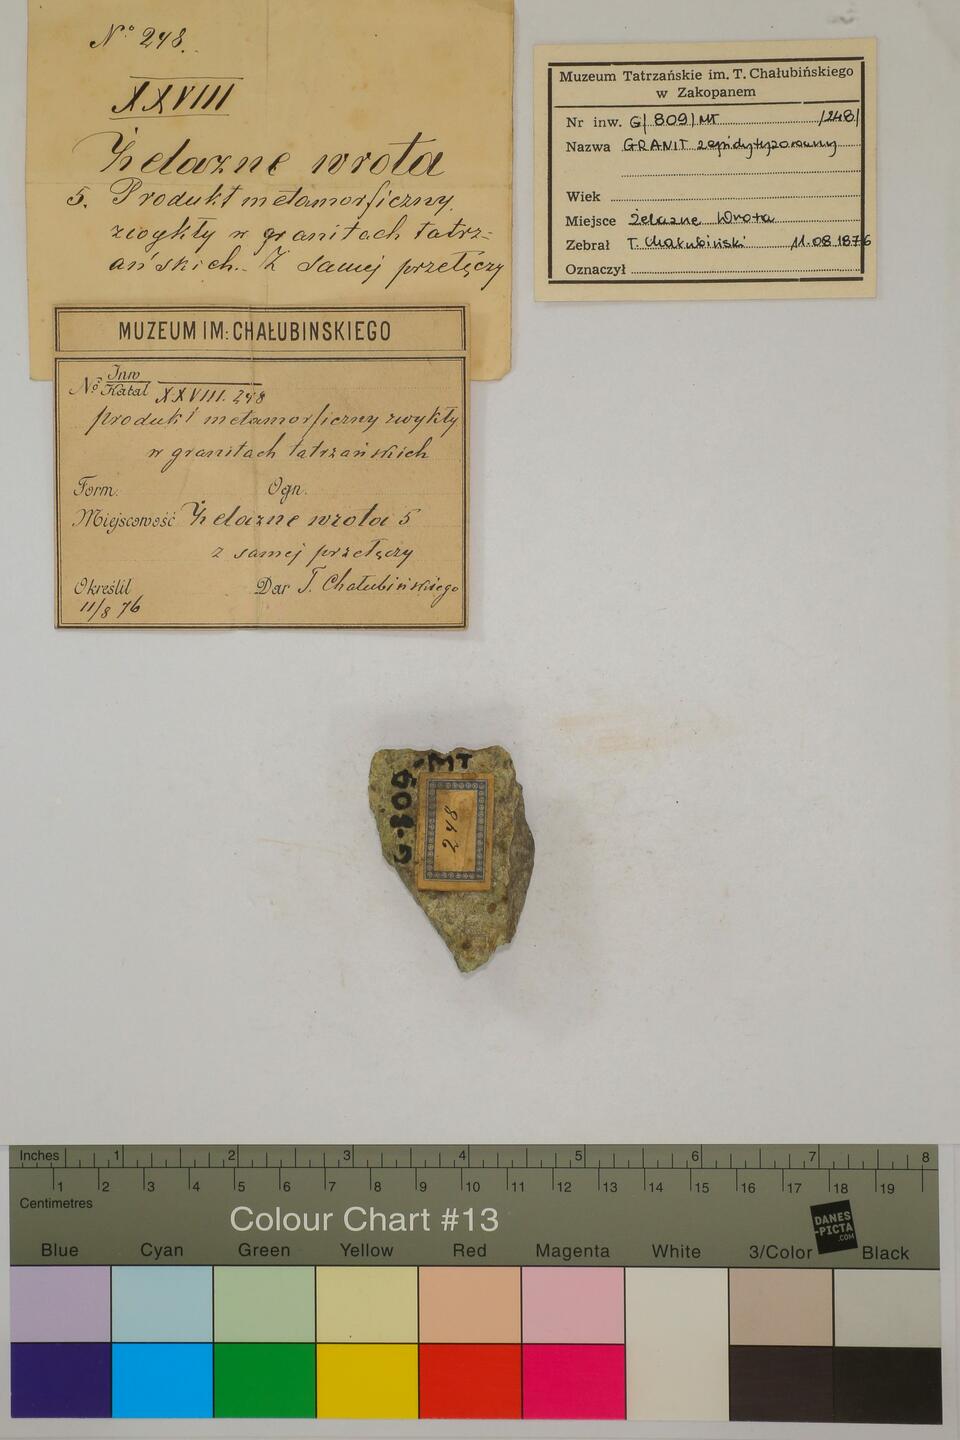 No 248.
XXVIII
Żelazne wrota
5. Produkt metamorficzny
zwykły w granitach tatrz=
ańskich. Z samej przełęczy
MUZEUM IM: CHAŁUBINSKIEGO
No Inw
Katal XXVIII. 248
produkt metamorficzny zwykły
w granitach tatrzańskich
Form. Ogn.
Miejscowość Żelazne wrota 5
z samej przełęczy
Określił Dar T. Chałubińskiego
11/8 76
Muzeum Tatrzańskie im. T. Chałubińskiego
w Zakopanem
Nr inw. G/809/MT /248/
Nazwa GRANIT zepidytyzowany
Wiek
Miejsce Żelazne Wrota
Zebrał T. Chałubiński 11.08.1876
Oznaczył
G-809-MT
248
Inches 1 2 3 4 5 6 7 8
1 2 3 4 5 6 7 8 9 10 11 12 13 14 15 16 17 18 19
Centimetres
Colour Chart #13
DANES
-PICTA
.COM
Blue Cyan Green Yellow Red Magenta White 3/Color Black